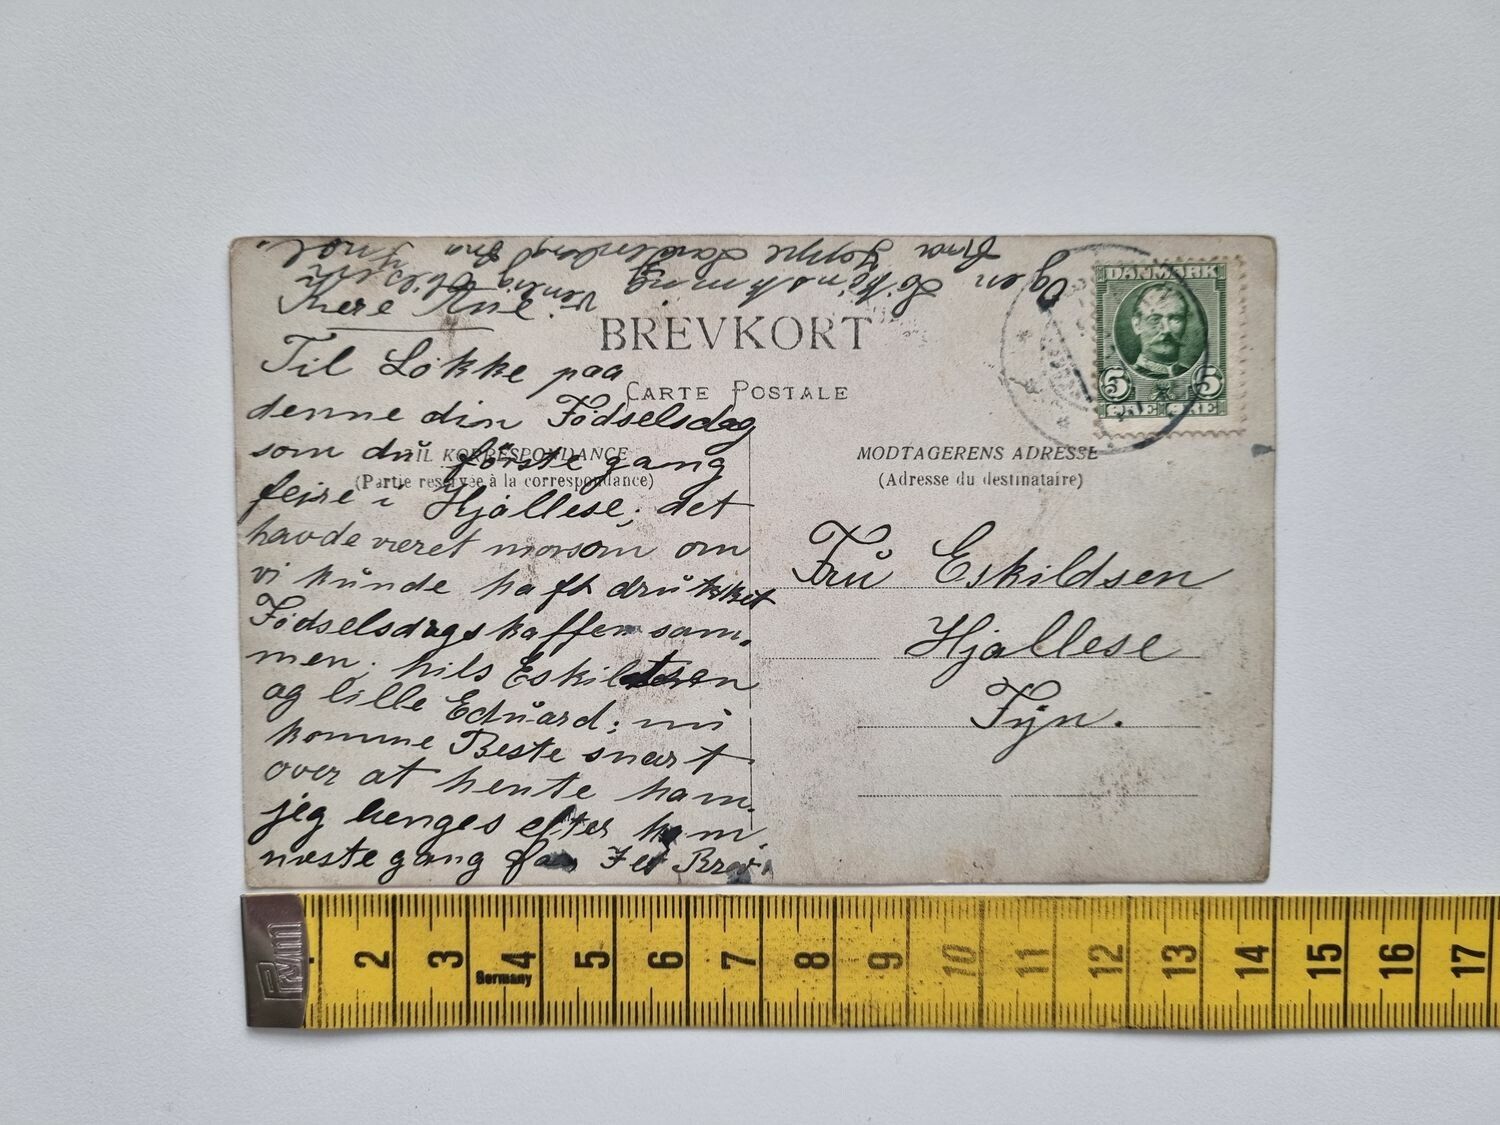 Kere Rue
Til Lökke paa
denne din Födselsdag
som du förstegang
fejre i Hjallese; det
havde været morsom om
vi kunde haft drukket
Födselsdagskaffen sam,
men; hils Eskildsen
og lille Eduard; nu
komme Beste snart
over at hente ham.
jeg lenges efter ham,
næstegang faar I et Brev
Og en
Venlig
fra
BREVKORT
CARTE POSTALE
TIL KORRESPONDANCE
(Partie reservée à la correspondance)
MODTAGERENS ADRESSE
(Adresse du destinataire)
DANMARK
5 5
ØRE ØRE
Fru Eskildsen
Hjallese
Fyn.
Prym
2 3 4 5 6 7 8 9 10 11 12 13 14 15 16 17
Germany